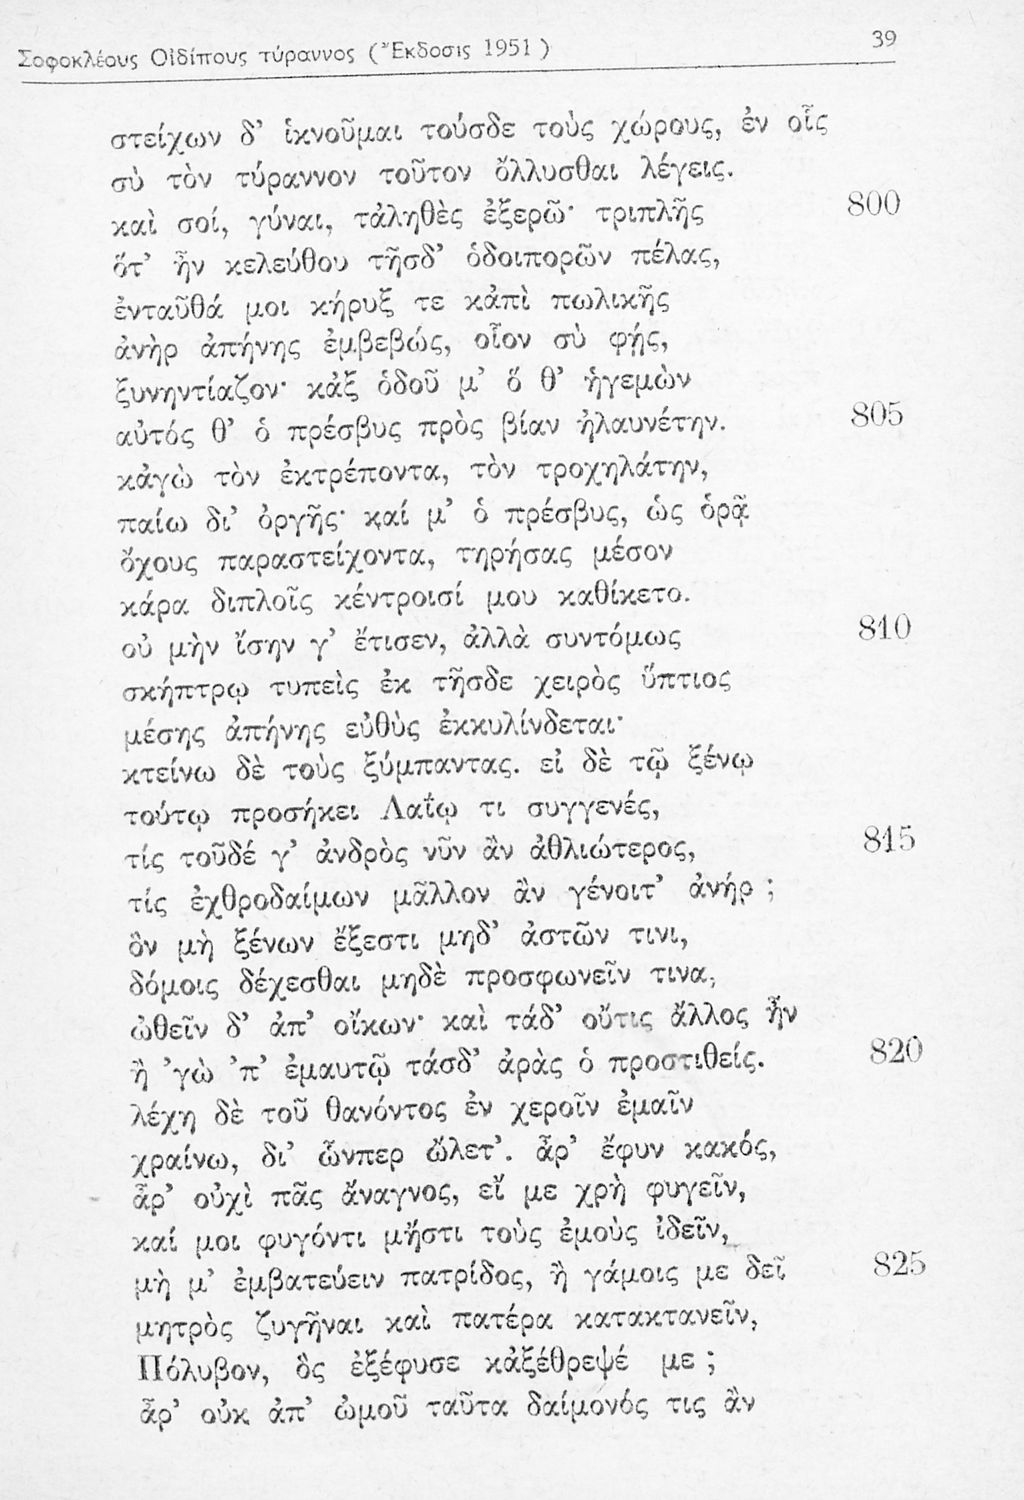 Σοφοκλέους Οἰδίπους τύραννος (Ἔκδοσις 1951) 39
στείχων δ’ ἱκνοῦμαι τούσδε τοὺς χώρους, ἐν οἷς
σὺ τὸν τύραννον τοῦτον ὄλλυσθαι λέγεις.
καὶ σοί, γύναι, τἀληθὲς ἐξερῶ· τριπλῆς 800
ὅτ’ ἦν κελεύθου τῆσδ’ ὁδοιπορῶν πέλας,
ἐνταῦθά μοι κήρυξ τε κἀπὶ πωλικῆς
ἀνὴρ ἀπήνης ἐμβεβώς, οἷον σὺ φῄς,
ξυνηντίαζον· κἀξ ὁδοῦ μ’ ὅ θ’ ἡγεμὼν
αὐτός θ’ ὁ πρέσβυς πρὸς βίαν ἠλαυνέτην. 805
κἀγὼ τὸν ἐκτρέποντα, τὸν τροχηλάτην,
παίω δι’ ὀργῆς· καί μ’ ὁ πρέσβυς, ὡς ὁρᾷ
ὄχους παραστείχοντα, τηρήσας μέσον
κάρα διπλοῖς κέντροισί μου καθίκετο.
οὐ μὴν ἴσην γ’ ἔτισεν, ἀλλὰ συντόμως 810
σκήπτρῳ τυπεὶς ἐκ τῆσδε χειρὸς ὕπτιος
μέσης ἀπήνης εὐθὺς ἐκκυλίνδεται·
κτείνω δὲ τοὺς ξύμπαντας. εἰ δὲ τῷ ξένῳ
τούτῳ προσήκει Λαΐῳ τι συγγενές,
τίς τοῦδέ γ’ ἀνδρὸς νῦν ἂν ἀθλιώτερος, 815
τίς ἐχθροδαίμων μᾶλλον ἂν γένοιτ’ ἀνήρ ;
ὃν μὴ ξένων ἔξεστι μηδ’ ἀστῶν τινι,
δόμοις δέχεσθαι μηδὲ προσφωνεῖν τινα,
ὠθεῖν δ’ ἀπ’ οἴκων· καὶ τάδ’ οὔτις ἄλλος ἦν
ἢ ’γὼ ’π’ ἐμαυτῷ τάσδ’ ἀρὰς ὁ προστιθείς. 820
λέχη δὲ τοῦ θανόντος ἐν χεροῖν ἐμαῖν
χραίνω, δι’ ὧνπερ ὤλετ’. ἆρ’ ἔφυν κακός,
ἆρ’ οὐχὶ πᾶς ἄναγνος, εἴ με χρὴ φυγεῖν,
καί μοι φυγόντι μἤστι τοὺς ἐμοὺς ἰδεῖν,
μὴ μ’ ἐμβατεύειν πατρίδος, ἢ γάμοις με δεῖ 825
μητρὸς ζυγῆναι καὶ πατέρα κατακτανεῖν,
Πόλυβον, ὃς ἐξέφυσε κἀξέθρεψέ με ;
ἆρ’ οὐκ ἀπ’ ὠμοῦ ταῦτα δαίμονός τις ἂν